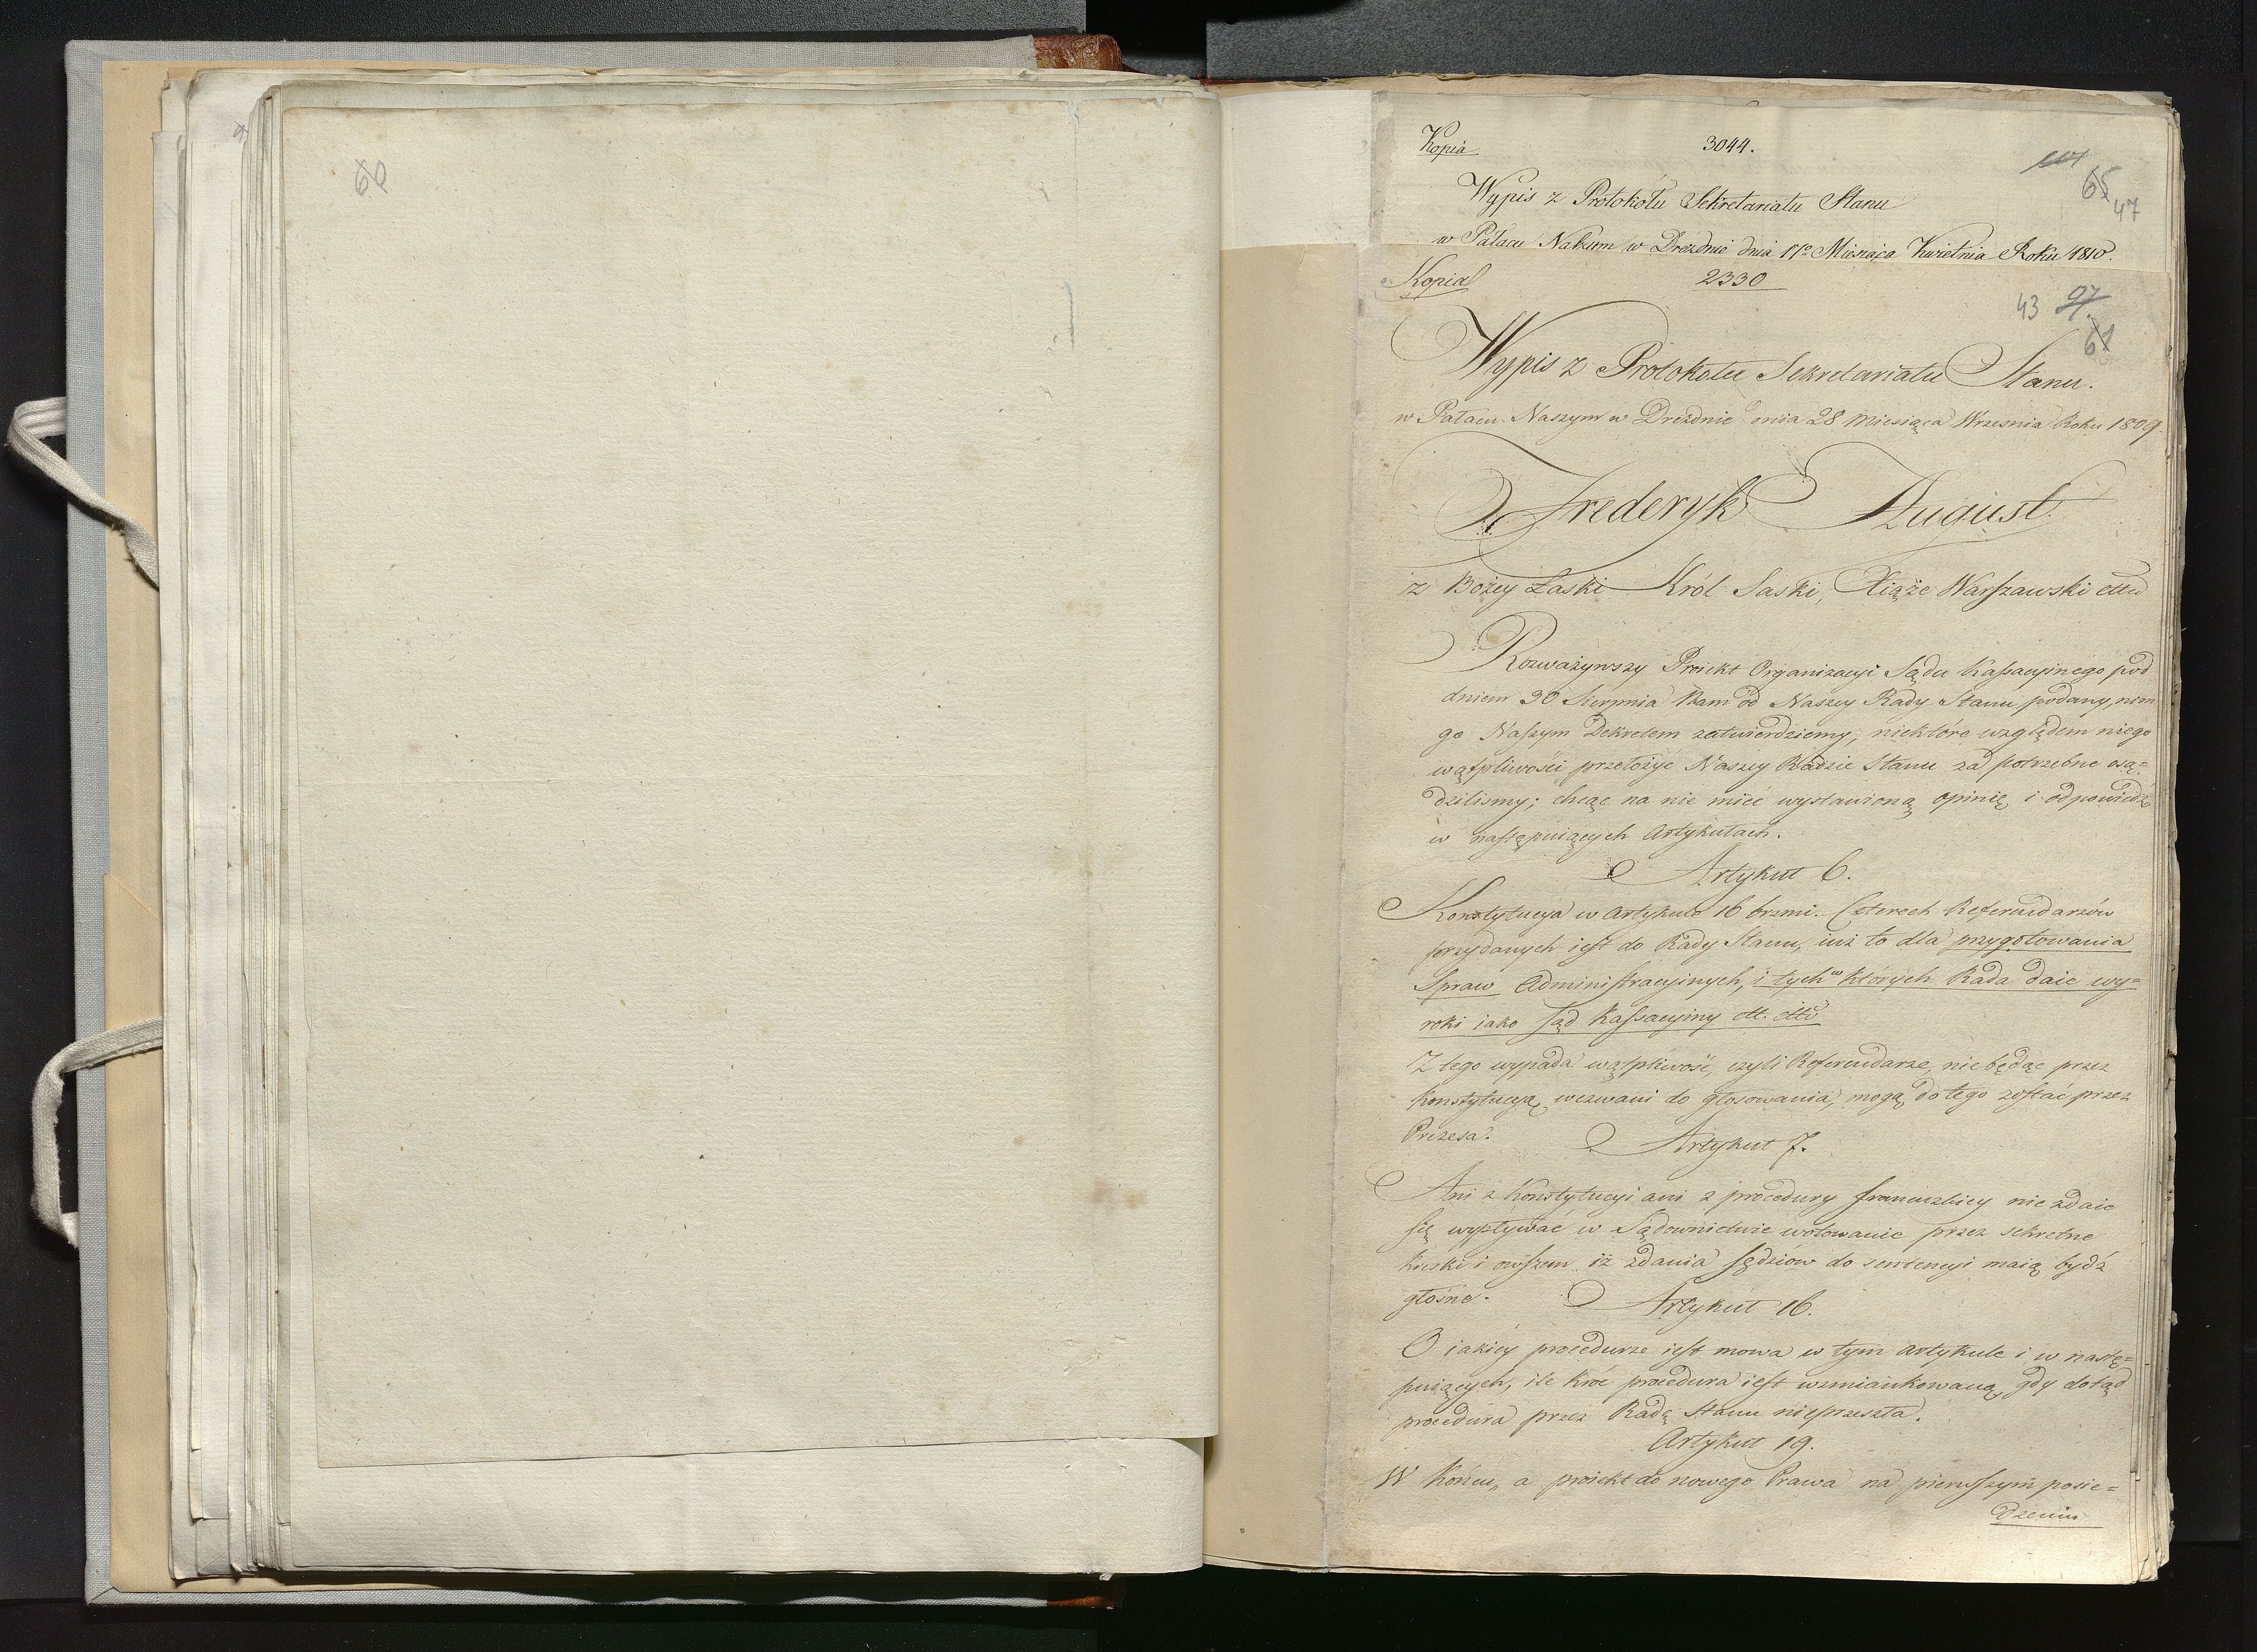 60
Kopia
3044.
65
47
Wypis z Protokółu Sekretariatu Stanu
w Pałacu Naszym w Dreźnie dnia 11º Miesiąca Kwietnia Roku 1810.
Kopia
2330
43 97.
61
Wypis z Protokołu Sekretariatu Stanu.
w Pałacu Naszym w Dreźnie dnia 28 Miesiąca Wrzesnia Roku 1809.
Frederyk August.
z Bożey Łaski Król Saski, Xiąże Warszawski ettd
Rozważywszy Proiekt Organizacyi Sądu Kassacyinego pod
dniem 30 Sierpnia Nam od Naszey Rady Stanu podany, nim
go Naszym Dekretem zatwierdziemy, niektóre względem niego
wątpliwości przełożyć Naszey Radzie Stanu za potrzebne osą=
dzilismy; chcąc na nie mieć wystawioną opinię i odpowiedź
w następuiących Artykułach.
Artykuł 6.
Konstytucya w Artykule 16 brzmi. Czterech Referendarzów
przydanych iest do Rady Stanu, iuż to dla przygotowania
Spraw Administracyinych, i tych w których Rada daie wy=
roki iako Sąd Kassacyiny ett. ettd
Z tego wypada wątpliwość, czyli Referendarze, nie będąc przez
Konstytucyą wezwani do głosowania, mogą do tego zostać przez
Prezesa.
Artykuł 7.
Ani z Konstytucyi ani z procedury francuzkiey nie zdaie
się wypływać w Sądownictwie wotowanie przez sekretne
kreski i owszem iż zdania sędziow do sentencyi maią bydź
głośne.
Artykuł 16.
O iakiey procedurze iest mowa w tym Artykule i w nastę=
puiących, ile kroć procedura iest wzmiankowaną, gdy dotąd
procedura przez Radę Stanu nieprzeszła.
Artykuł 19.
W Końcu, a proiekt do nowego Prawa na pierwszym posie=
dzeniu